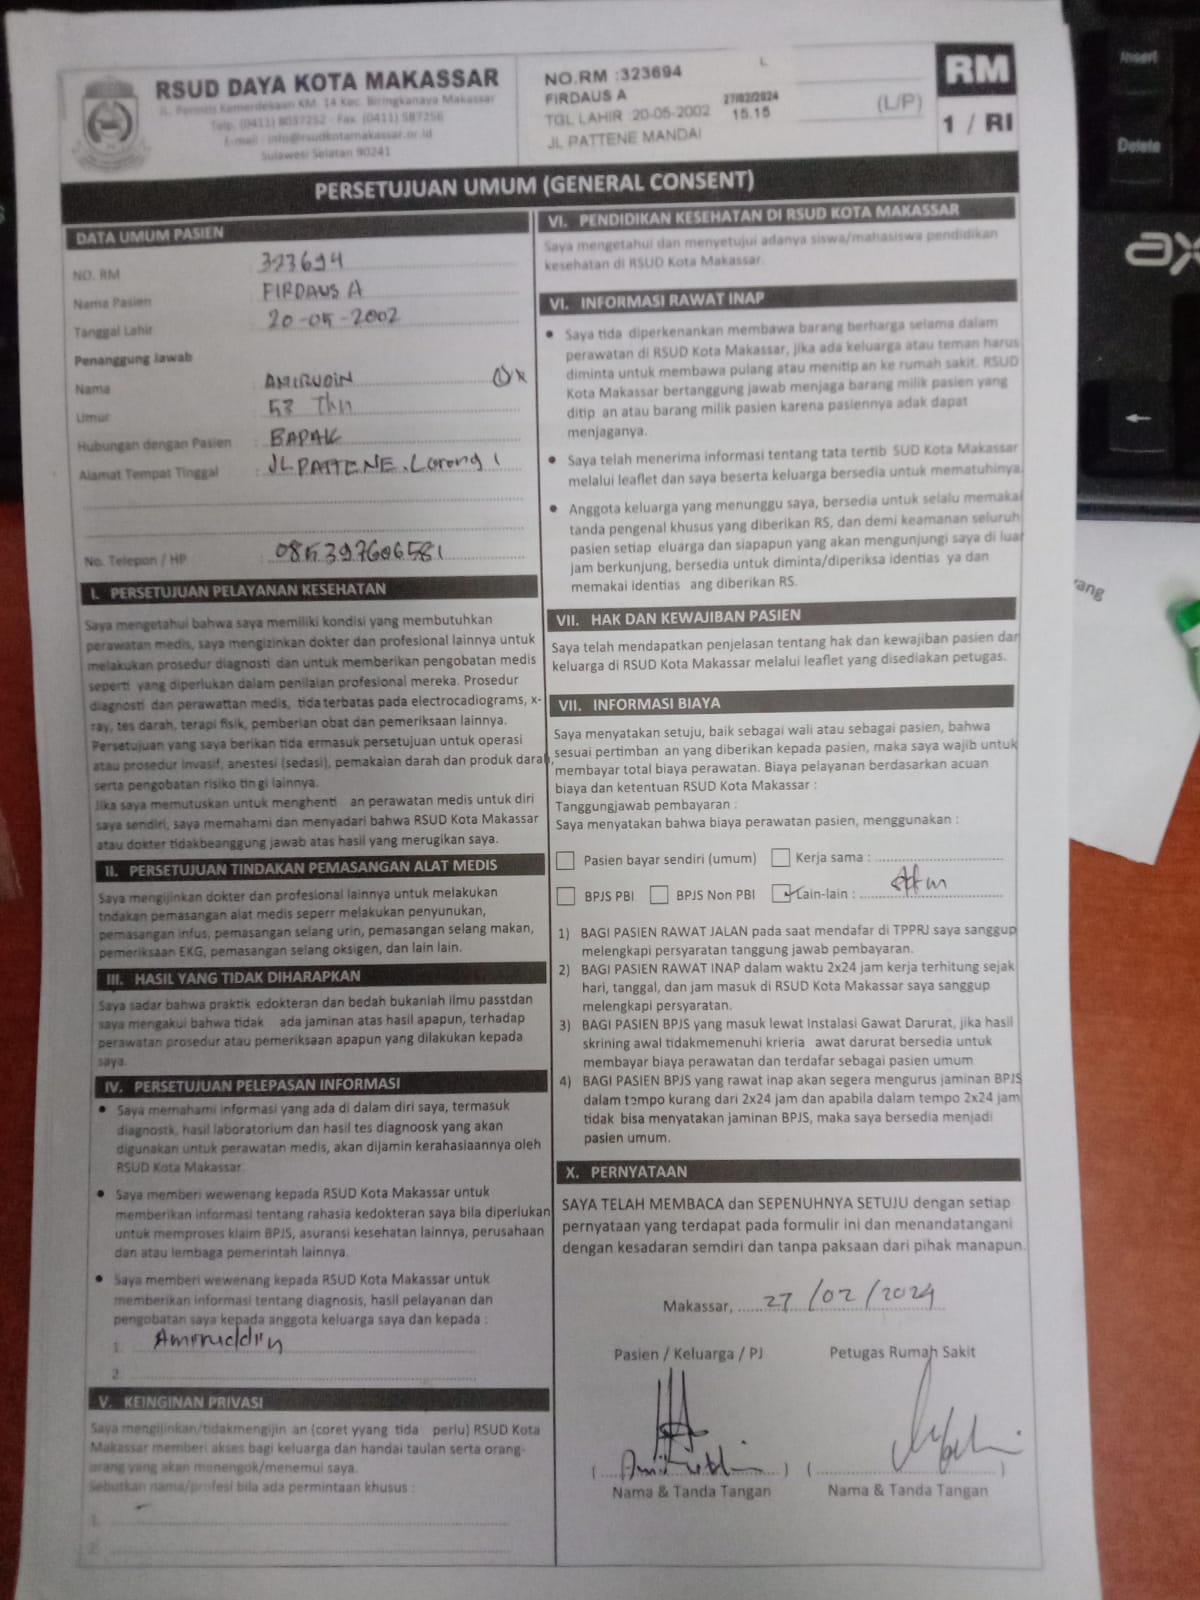 RSUD DAYA KOTA MAKASSAR
JL. Perintis Kemerdekaan KM. 14 Kec. Biringkanaya Makassar
Telp. (0411) 8037252 - Fax (0411) 587256
E-mail : info@rsudkotamakassar.or.id
Sulawesi Selatan 90241
NO.RM :323694
L
FIRDAUS A
27/02/2024
TGL LAHIR 20-05-2002
15.15
JL PATTENE MANDAI
(L/P)
RM
1 / RI
PERSETUJUAN UMUM (GENERAL CONSENT)
DATA UMUM PASIEN
NO. RM 323694
Nama Pasien : FIRDAUS A
Tanggal Lahir : 20-05-2002
Penanggung Jawab
Nama : AMIRUDIN
Umur : 53 Thn
Hubungan dengan Pasien : BAPAK
Alamat Tempat Tinggal : JL PATTENE, Lorong 1
No. Telepon / HP : 085397606581
I. PERSETUJUAN PELAYANAN KESEHATAN
Saya mengetahui bahwa saya memiliki kondisi yang membutuhkan
perawatan medis, saya mengizinkan dokter dan profesional lainnya untuk
melakukan prosedur diagnosti dan untuk memberikan pengobatan medis
seperti yang diperlukan dalam penilaian profesional mereka. Prosedur
diagnosti dan perawattan medis, tida terbatas pada electrocadiograms, x-
ray, tes darah, terapi fisik, pemberian obat dan pemeriksaan lainnya.
Persetujuan yang saya berikan tida ermasuk persetujuan untuk operasi
atau prosedur invasif, anestesi (sedasi), pemakaian darah dan produk darah,
serta pengobatan risiko tin gi lainnya.
Jika saya memutuskan untuk menghenti an perawatan medis untuk diri
saya sendiri, saya memahami dan menyadari bahwa RSUD Kota Makassar
atau dokter tidakbeanggung jawab atas hasil yang merugikan saya.
II. PERSETUJUAN TINDAKAN PEMASANGAN ALAT MEDIS
Saya mengijinkan dokter dan profesional lainnya untuk melakukan
tndakan pemasangan alat medis seperr melakukan penyunukan,
pemasangan infus, pemasangan selang urin, pemasangan selang makan,
pemeriksaan EKG, pemasangan selang oksigen, dan lain lain.
III. HASIL YANG TIDAK DIHARAPKAN
Saya sadar bahwa praktik edokteran dan bedah bukanlah ilmu passtdan
saya mengakui bahwa tidak ada jaminan atas hasil apapun, terhadap
perawatan prosedur atau pemeriksaan apapun yang dilakukan kepada
saya.
IV. PERSETUJUAN PELEPASAN INFORMASI
• Saya memahami informasi yang ada di dalam diri saya, termasuk
diagnostk, hasil laboratorium dan hasil tes diagnoosk yang akan
digunakan untuk perawatan medis, akan dijamin kerahasiaannya oleh
RSUD Kota Makassar.
• Saya memberi wewenang kepada RSUD Kota Makassar untuk
memberikan informasi tentang rahasia kedokteran saya bila diperlukan
untuk memproses klaim BPJS, asuransi kesehatan lainnya, perusahaan
dan atau lembaga pemerintah lainnya.
• Saya memberi wewenang kepada RSUD Kota Makassar untuk
memberikan informasi tentang diagnosis, hasil pelayanan dan
pengobatan saya kepada anggota keluarga saya dan kepada :
1. Amiruddin
2.
V. KEINGINAN PRIVASI
Saya mengijinkan/tidakmengijin an (coret yyang tida perlu) RSUD Kota
Makassar memberi akses bagi keluarga dan handai taulan serta orang-
orang yang akan menengok/menemui saya.
Sebutkan nama/profesi bila ada permintaan khusus :
1.
2.
VI. PENDIDIKAN KESEHATAN DI RSUD KOTA MAKASSAR
Saya mengetahui dan menyetujui adanya siswa/mahasiswa pendidikan
kesehatan di RSUD Kota Makassar.
VI. INFORMASI RAWAT INAP
• Saya tida diperkenankan membawa barang berharga selama dalam
perawatan di RSUD Kota Makassar, jika ada keluarga atau teman harus
diminta untuk membawa pulang atau menitip an ke rumah sakit. RSUD
Kota Makassar bertanggung jawab menjaga barang milik pasien yang
ditip an atau barang milik pasien karena pasiennya adak dapat
menjaganya.
• Saya telah menerima informasi tentang tata tertib SUD Kota Makassar
melalui leaflet dan saya beserta keluarga bersedia untuk mematuhinya.
• Anggota keluarga yang menunggu saya, bersedia untuk selalu memakai
tanda pengenal khusus yang diberikan RS, dan demi keamanan seluruh
pasien setiap eluarga dan siapapun yang akan mengunjungi saya di luar
jam berkunjung, bersedia untuk diminta/diperiksa identias ya dan
memakai identias ang diberikan RS.
VII. HAK DAN KEWAJIBAN PASIEN
Saya telah mendapatkan penjelasan tentang hak dan kewajiban pasien dar
keluarga di RSUD Kota Makassar melalui leaflet yang disediakan petugas.
VII. INFORMASI BIAYA
Saya menyatakan setuju, baik sebagai wali atau sebagai pasien, bahwa
sesuai pertimban an yang diberikan kepada pasien, maka saya wajib untuk
membayar total biaya perawatan. Biaya pelayanan berdasarkan acuan
biaya dan ketentuan RSUD Kota Makassar :
Tanggungjawab pembayaran :
Saya menyatakan bahwa biaya perawatan pasien, menggunakan :
Pasien bayar sendiri (umum) Kerja sama :
BPJS PBI BPJS Non PBI Lain-lain :
1) BAGI PASIEN RAWAT JALAN pada saat mendafar di TPPRJ saya sanggup
melengkapi persyaratan tanggung jawab pembayaran.
2) BAGI PASIEN RAWAT INAP dalam waktu 2x24 jam kerja terhitung sejak
hari, tanggal, dan jam masuk di RSUD Kota Makassar saya sanggup
melengkapi persyaratan.
3) BAGI PASIEN BPJS yang masuk lewat Instalasi Gawat Darurat, jika hasil
skrining awal tidakmemenuhi krieria awat darurat bersedia untuk
membayar biaya perawatan dan terdafar sebagai pasien umum
4) BAGI PASIEN BPJS yang rawat inap akan segera mengurus jaminan BPJS
dalam tempo kurang dari 2x24 jam dan apabila dalam tempo 2x24 jam
tidak bisa menyatakan jaminan BPJS, maka saya bersedia menjadi
pasien umum.
X. PERNYATAAN
SAYA TELAH MEMBACA dan SEPENUHNYA SETUJU dengan setiap
pernyataan yang terdapat pada formulir ini dan menandatangani
dengan kesadaran semdiri dan tanpa paksaan dari pihak manapun.
Makassar, 27/02/2024
Pasien / Keluarga / PJ Petugas Rumah Sakit
Nama & Tanda Tangan Nama & Tanda Tangan
Insert
Delete
ax
rang